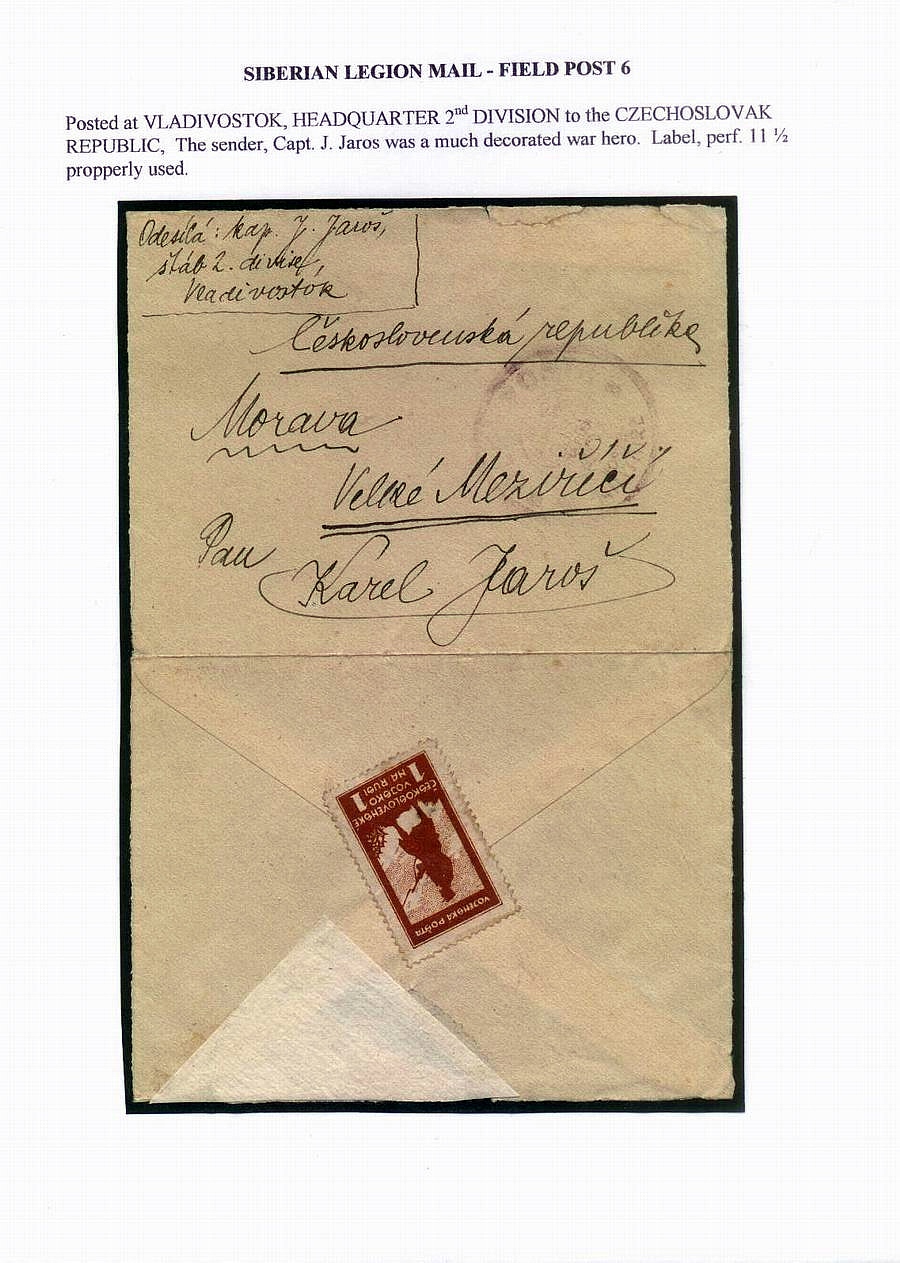 SIBERIAN LEGION MAIL - FIELD POST 6
Posted at VLADIVOSTOK, HEADQUARTER 2nd DIVISION to the CZECHOSLOVAK
REPUBLIC, The sender, Capt. J. Jaros was a much decorated war hero. Label, perf. 11 ½
propperly used.
Odesílá: kap. J. Jaroš,
štáb 2. divise,
Vladivostok
Československá republika
Morava
Velké Meziříčí
Pan
Karel Jaroš
1 1
ČESKOSLOVENSKÉ
VOJSKO
NA RUSI
VOJENSKÁ POŠTA